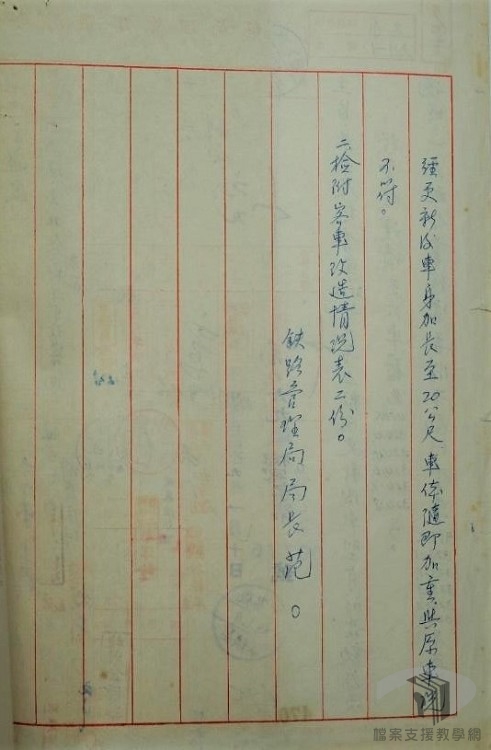 經更新後車身加長至20公尺、車体隨即加重與原車
不符。
二、檢附客車改造情況表二份。
鉄路管理局局長范○
檔案支援教學網